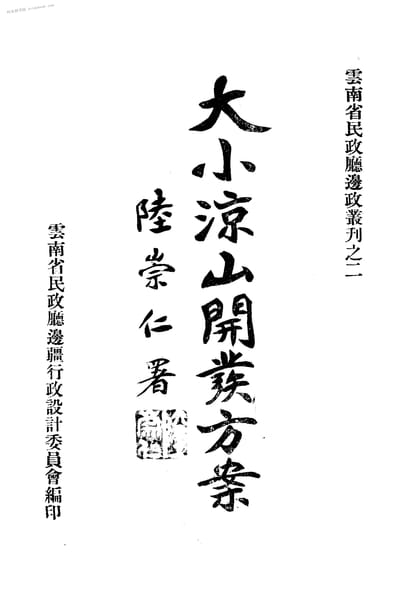 雲南省民政廳邊政叢刊之二
大小涼山開發方案
陸崇仁署
雲南省民政廳邊疆行政設計委員會編印